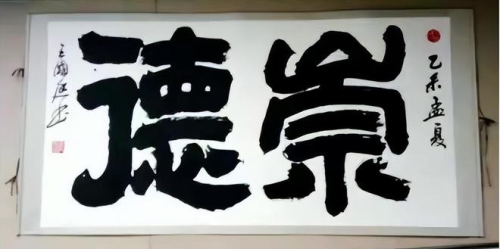 乙未孟夏
崇德
王國庭书